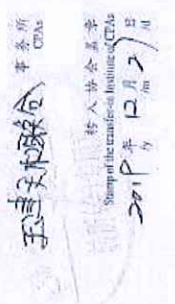 联合 事务所
CPAs
转入协会盖章
Stamp of the transfer-in Institute of CPAs
2019年12月27日
/y /m /d